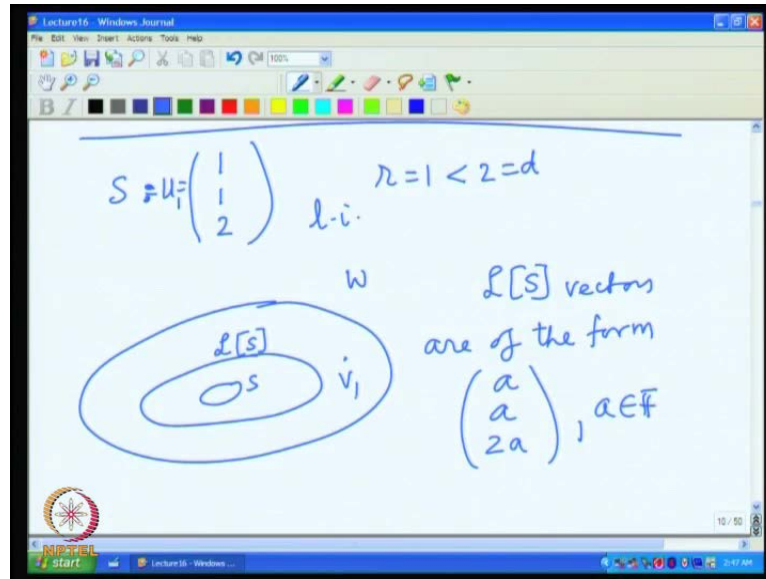 Lecture16 - Windows Journal
File Edit View Insert Actions Tools Help
100%
B I
S = u₁ = (1 1 2) l.i. r = 1 < 2 = d
W
L[S] vectors
are of the form
(a a 2a), a ∈ F
L[S]
S
v₁
10 / 50
NPTEL
start Lecture16 - Windows ... 2:47 AM